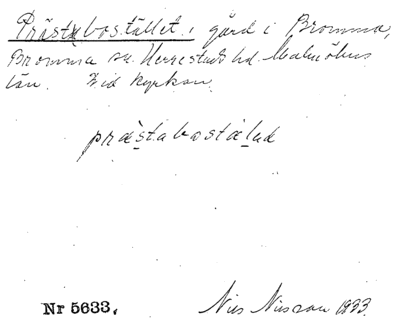 Prästabostället, gård i Bromma,
Bromma sn. Herrestads hd. Malmöhus
län. Vid kyrkan.
præstabostælad
Nr 5633. Nils Nilsson 1933.